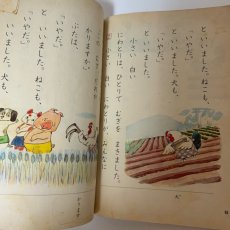 と、いいました。ねこも、
「いやだ。」
と、いいました。犬も、
「いやだ。」
と、いいました。
小さい 白い
にわとりは、ひとりで むぎを まきました。
犬
小さい 白い にわとりが、みんなに
かりますか。」
ぶたは、
「いやだ。」
と いいました。ねこも、
「いやだ。」
と いいました。犬も、
かります